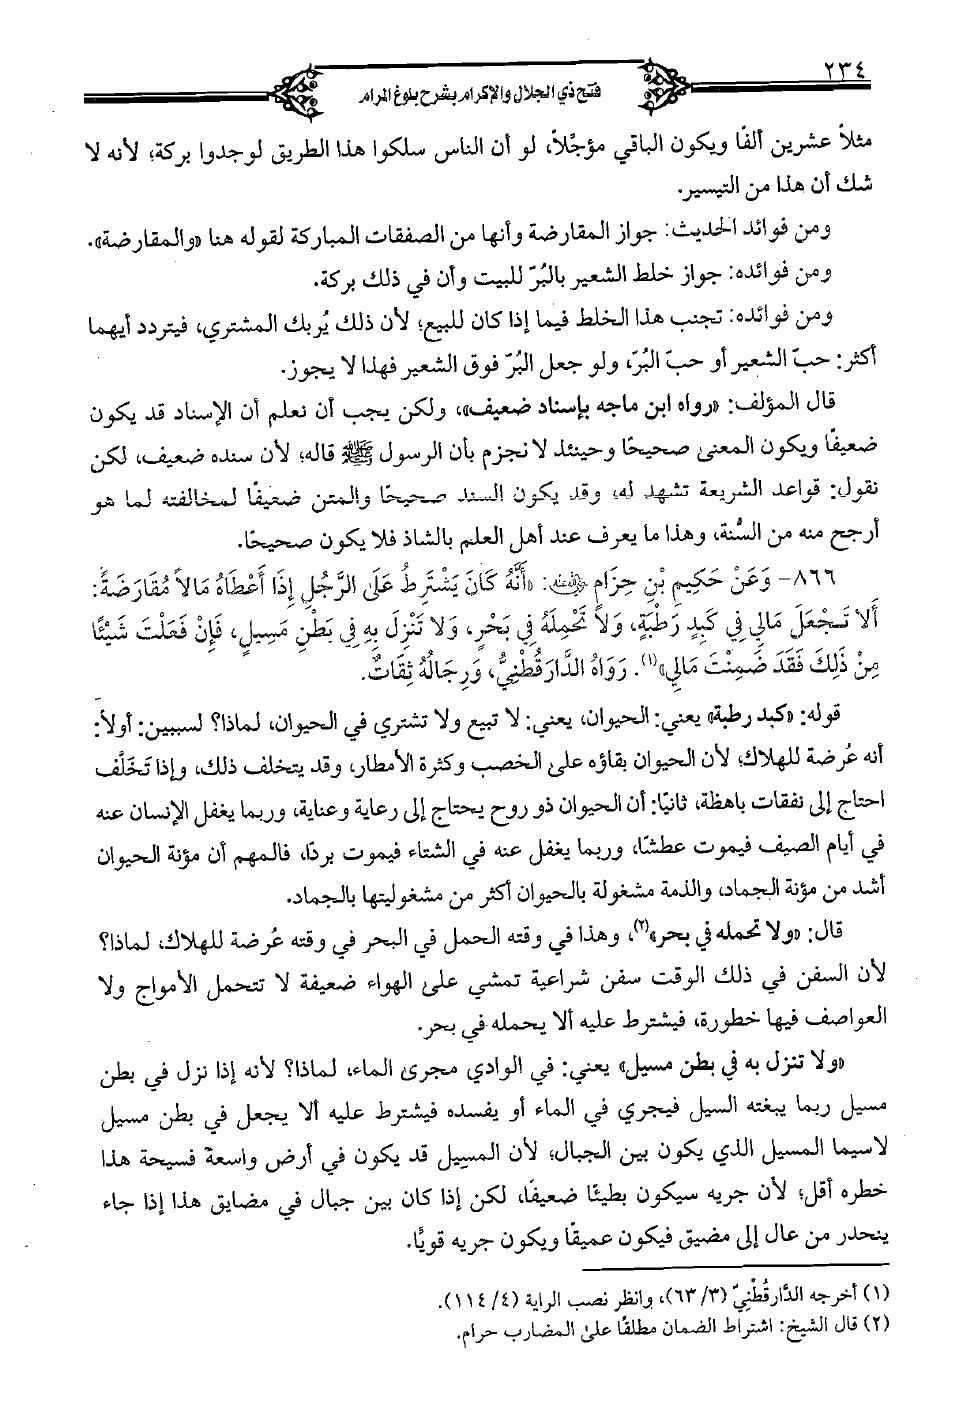 ٢٣٤
فتح ذي الجلال والإكرام بشرح بلوغ المرام
مثلاً عشرين ألفًا ويكون الباقي مؤجّلاً، لو أن الناس سلكوا هذا الطريق لوجدوا بركة؛ لأنه لا
شك أن هذا من التيسير.
ومن فوائد الحديث: جواز المقارضة وأنها من الصفقات المباركة لقوله هنا «والمقارضة».
ومن فوائده: جواز خلط الشعير بالبُرّ للبيت وأن في ذلك بركة.
ومن فوائده: تجنب هذا الخلط فيما إذا كان للبيع؛ لأن ذلك يُربك المشتري، فيتردد أيهما
أكثر: حبّ الشعير أو حبّ البُرّ، ولو جعل البُرّ فوق الشعير فهذا لا يجوز.
قال المؤلف: «رواه ابن ماجه بإسناد ضعيف»، ولكن يجب أن نعلم أن الإسناد قد يكون
ضعيفًا ويكون المعنى صحيحًا وحينئذ لا نجزم بأن الرسول ﷺ قاله؛ لأن سنده ضعيف، لكن
نقول: قواعد الشريعة تشهد له، وقد يكون السند صحيحًا والمتن ضعيفًا لمخالفته لما هو
أرجح منه من السُّنة، وهذا ما يعرف عند أهل العلم بالشاذ فلا يكون صحيحًا.
٨٦٦- وَعَنْ حَكِيمِ بْنِ حِزَامٍ رضي الله عنه: «أَنَّهُ كَانَ يَشْتَرِطُ عَلَى الرَّجُلِ إِذَا أَعْطَاهُ مَالاً مُقَارَضَةً:
أَلَا تَجْعَلَ مَالِي فِي كَبِدٍ رَطْبَةٍ، وَلاَ تَحْمِلَهُ فِي بَحْرٍ، وَلاَ تَنْزِلَ بِهِ فِي بَطْنِ مَسِيلٍ، فَإِنْ فَعَلْتَ شَيْئًا
مِنْ ذَلِكَ فَقَدَ ضَمِنْتَ مَالِي»(١). رَوَاهُ الدَّارَقُطْنِيُّ، وَرِجَالُهُ ثِقَاتٌ.
قوله: «كبد رطبة» يعني: الحيوان، يعني: لا تبيع ولا تشتري في الحيوان، لماذا؟ لسببين: أولاً:
أنه عُرضة للهلاك؛ لأن الحيوان بقاؤه على الخصب وكثرة الأمطار، وقد يتخلف ذلك، وإذا تَخَلَّف
احتاج إلى نفقات باهظة، ثانيًا: أن الحيوان ذو روح يحتاج إلى رعاية وعناية، وربما يغفل الإنسان عنه
في أيام الصيف فيموت عطشًا، وربما يغفل عنه في الشتاء فيموت بردًا، فالمهم أن مؤنة الحيوان
أشد من مؤنة الجماد، والذمة مشغولة بالحيوان أكثر من مشغوليتها بالجماد.
قال: «ولا تحمله في بحر»(٢)، وهذا في وقته الحمل في البحر في وقته عُرضة للهلاك، لماذا؟
لأن السفن في ذلك الوقت سفن شراعية تمشي على الهواء ضعيفة لا تتحمل الأمواج ولا
العواصف فيها خطورة، فيشترط عليه ألا يحمله في بحر.
«ولا تنزل به في بطن مسيل» يعني: في الوادي مجرى الماء، لماذا؟ لأنه إذا نزل في بطن
مسيل ربما يبغته السيل فيجري في الماء أو يفسده فيشترط عليه ألا يجعل في بطن مسيل
لاسيما المسيل الذي يكون بين الجبال؛ لأن المسيل قد يكون في أرض واسعة فسيحة هذا
خطره أقل؛ لأن جريه سيكون بطيئًا ضعيفًا، لكن إذا كان بين جبال في مضايق هذا إذا جاء
ينحدر من عال إلى مضيق فيكون عميقًا ويكون جريه قويًّا.
(١) أخرجه الدَّارقُطْنِيّ (٦٣/٣)، وانظر نصب الراية (١١٤/٤).
(٢) قال الشيخ: اشتراط الضمان مطلقًا على المضارب حرام.